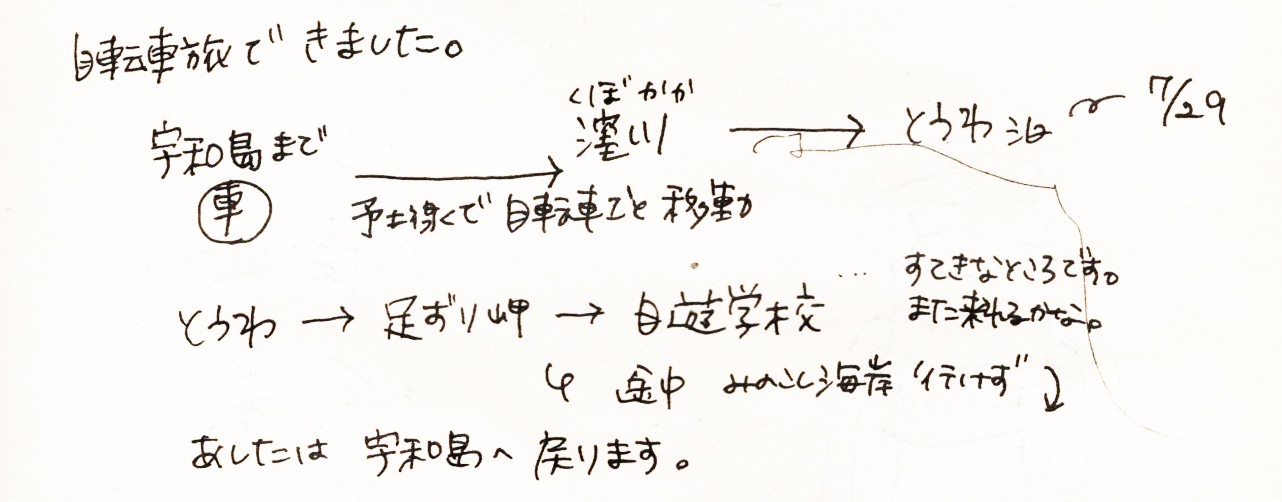 自転車旅できました。
くぼかわ
宇和島まで → 窪川 → とうわ泊 〜 7/29
車 予土線で自転車ごと移動
… すてきなところです。
とうわ → 足ずり岬 → 自遊学校 また来れるかな。
↳ 途中 みのこし海岸 行けず
あしたは 宇和島へ 戻ります。